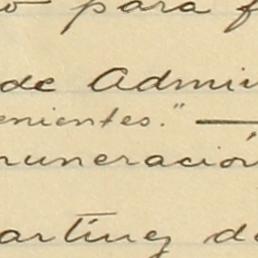 o para f
de Admin
enientes." —
nuneración
artínez de